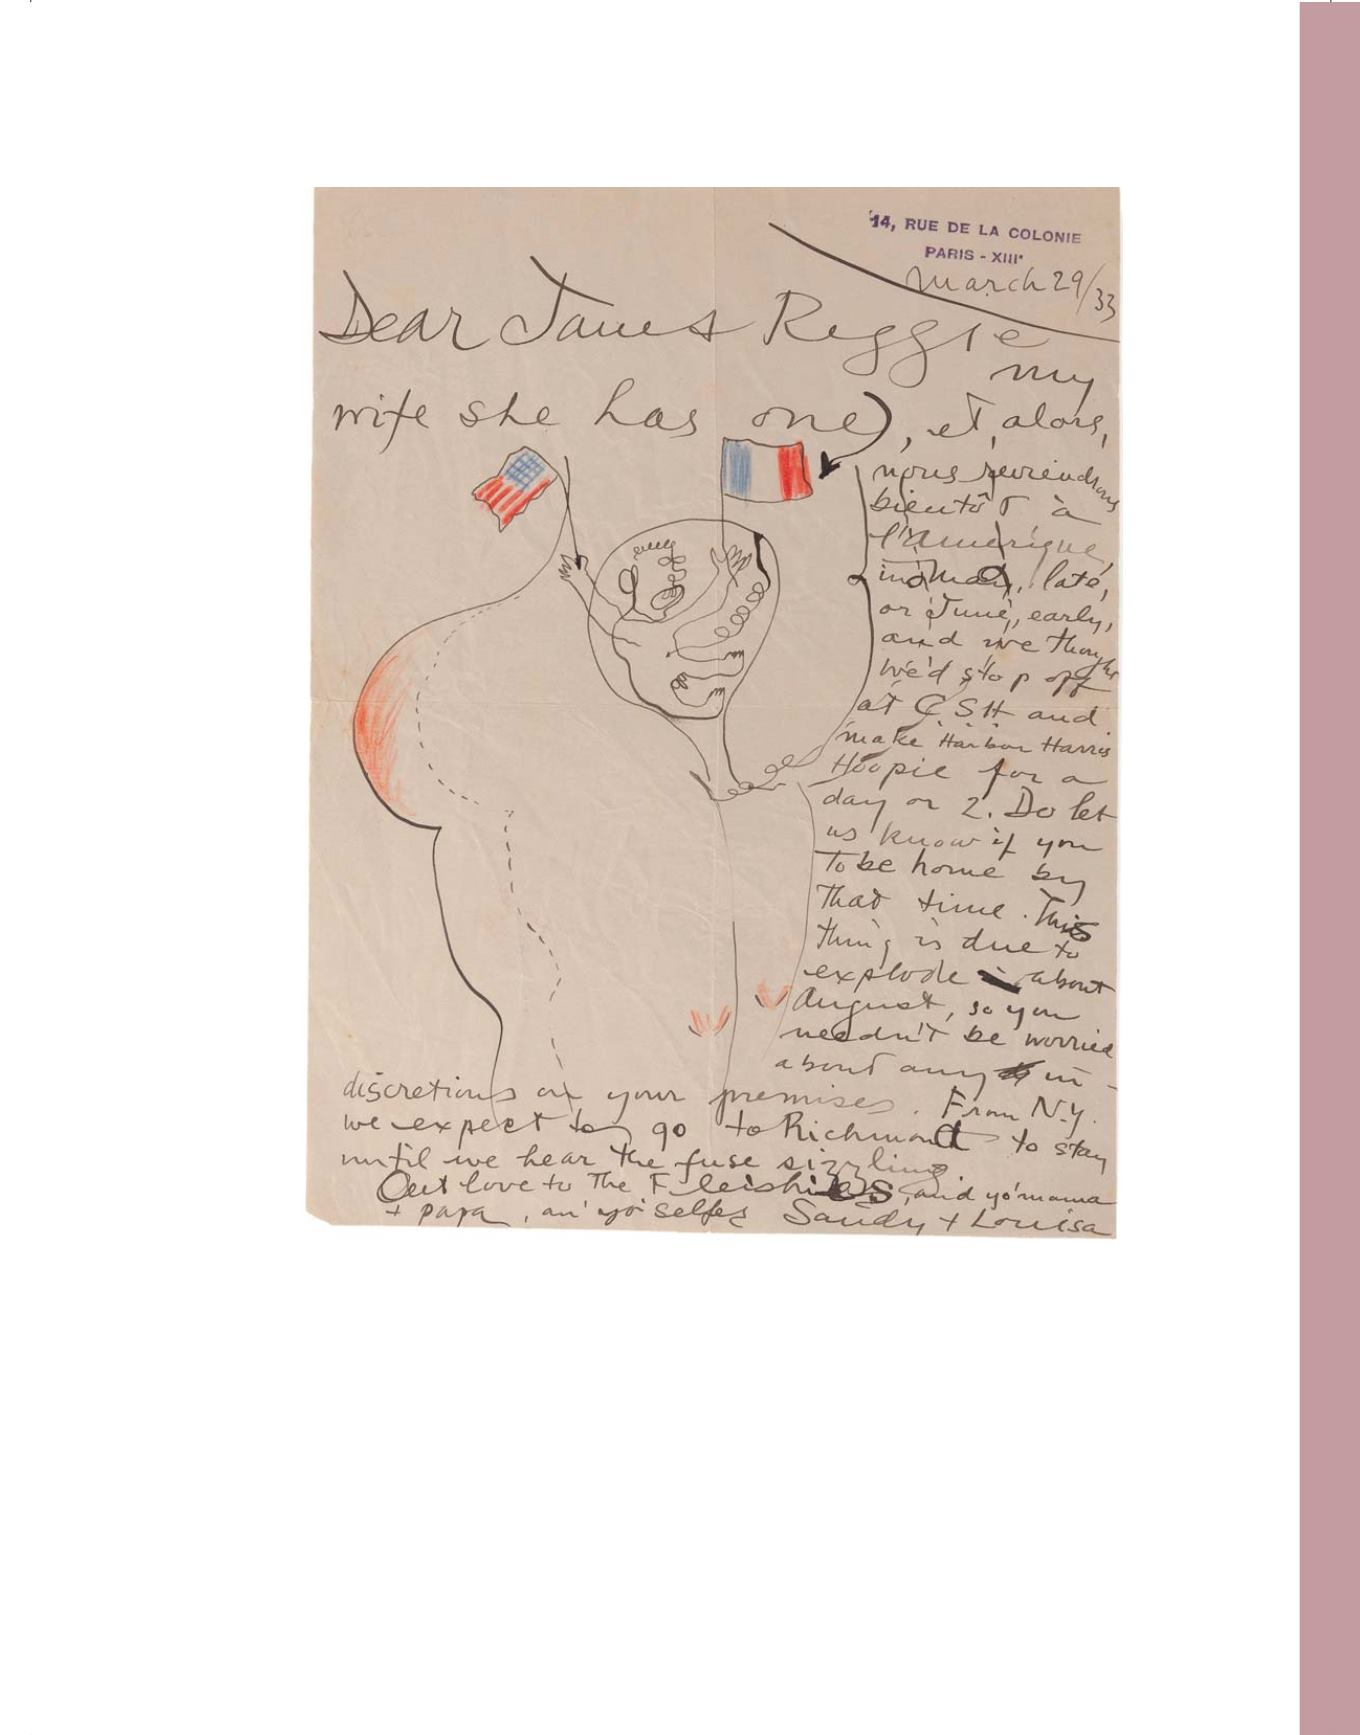 14, RUE DE LA COLONIE
PARIS - XIIIe
March 29/33
Dear James Reggie
my
wife she has one), et, alors,
nous reviendrons
bientôt à
l'Amérique,
in May, late,
or June, early,
and we thought
we'd stop off
at CSH and
make Harbor Harris
Hoopie for a
day or 2. Do let
us know if you
to be home by
that time. This
thing is due to
explode about
August, so you
needn't be worried
about any in-
discretions on your premises. From N.Y.
we expect to go to Richmond to stay
until we hear the fuse sizzling.
Out love to the and yo' mama
+ papa, an' yo' selfes Sandy + Louisa